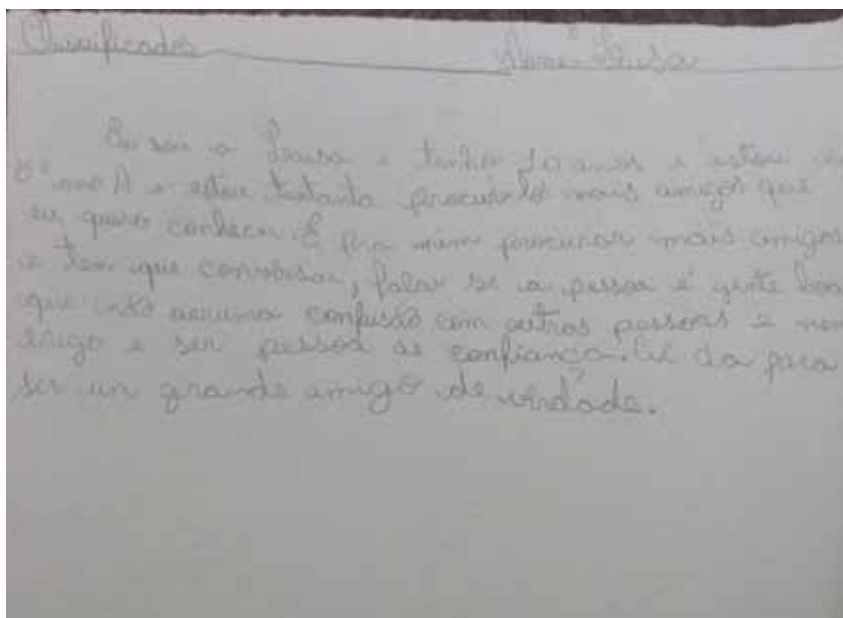 Classificados Nome: Luisa
Eu sou a Luisa e tenho 10 anos e estou no
5º ano A e estou tentanto procurando mais amigos que
eu quero conhecer. E pra mim procurar mais amigos
e tem que conversar, falar se a pessoa é gente boa
que não arruma confusão com outras pessoas e nem
briga e ser pessoa de confiança. Aí da para
ser un grande amigo de verdade.